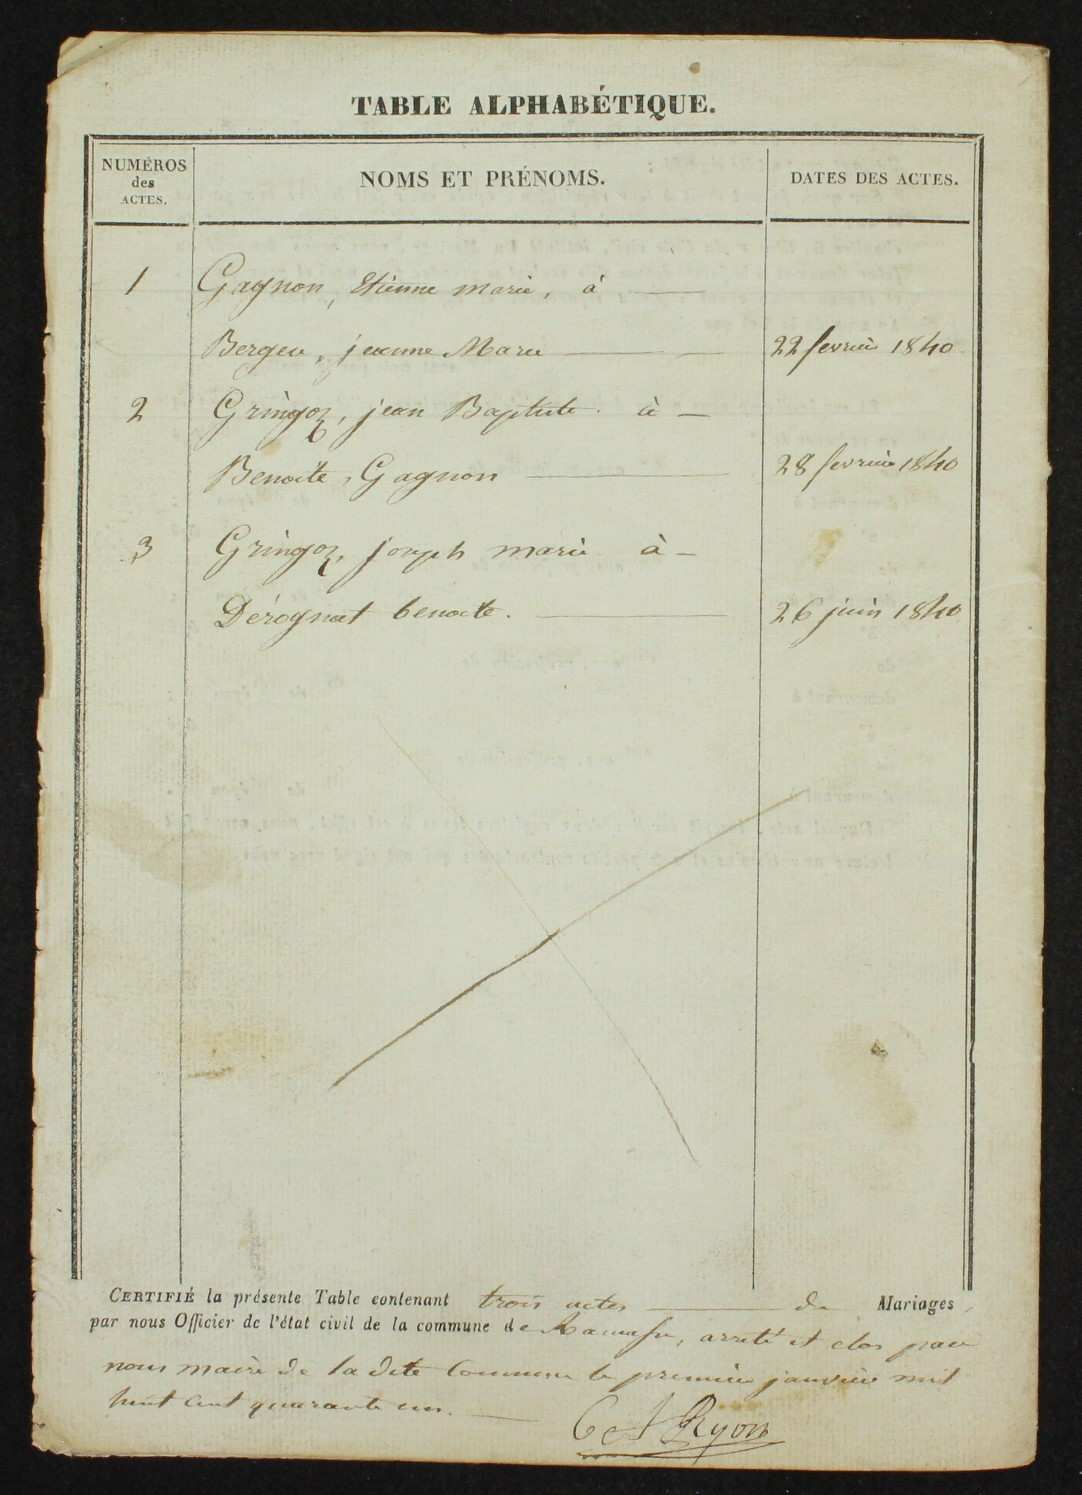 TABLE ALPHABÉTIQUE.
NUMÉROS
des
ACTES.
NOMS ET PRÉNOMS.
DATES DES ACTES.
1 Gagnon, Etienne marie, à
Bergeu, jeanne Marie 22 fevrier 1840
2 Gringoz, jean Baptiste à
Benoite, Gagnon 28 fevrier 1840
3 Gringoz, joseph marie à
Dérognat benoite. 26 juin 1840
CERTIFIÉ la présente Table contenant trois actes de Mariages
par nous Officier de l'état civil de la commune de Ramasse, arrêté et clos par
nous maire de la dite Commune le premier janvier mil
huit cent quarante un.
Ryon